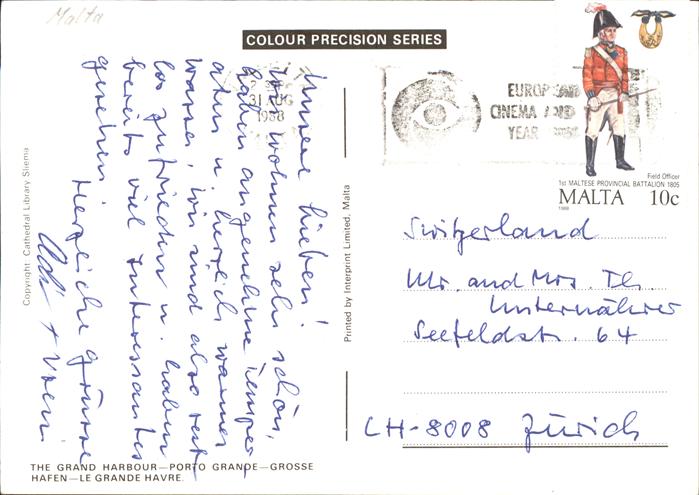 Malta
COLOUR PRECISION SERIES
Unsere lieben!
Wir wohnen sehr schön,
haben angenehme Temper-
aturen u. herrlich warmes
Wasser, wir sind also rest-
los zufrieden u. haben
bereits viel Interessantes
gesehen.
Herzliche Grüsse
+ Vreni
31 AUG
1988
EUROPEAN
CINEMA AND
YEAR
Field Officer
1st MALTESE PROVINCIAL BATTALION 1805
MALTA 10c
1988
Switzerland
Mr. and Mrs. Th.
Unternährer
Seefeldstr. 64
CH-8008 Zürich
Copyright Cathedral Library Sliema
Printed by Interprint Limited, Malta
THE GRAND HARBOUR—PORTO GRANDE—GROSSE
HAFEN—LE GRANDE HAVRE.